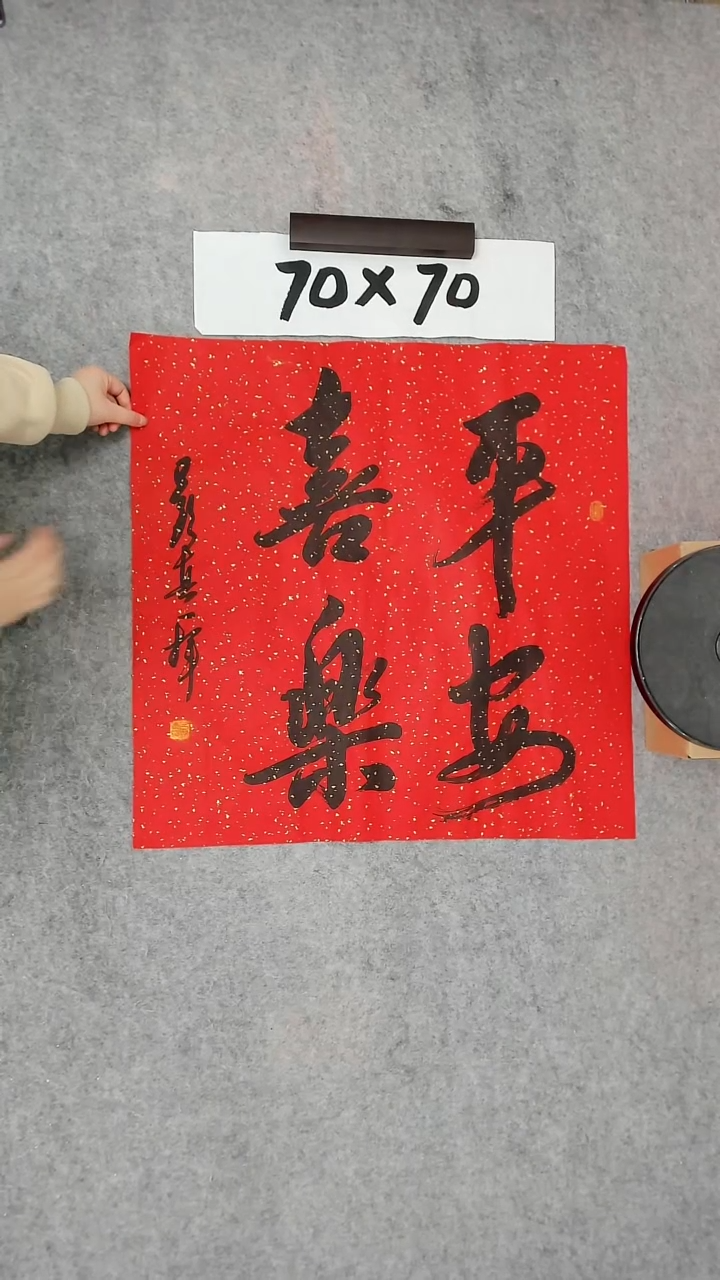 70×70
平安
喜樂